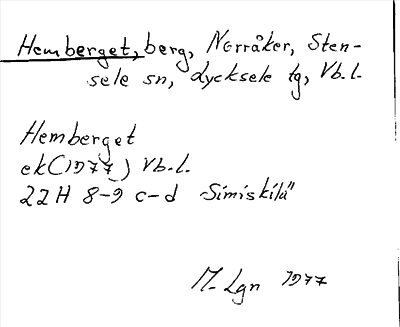 Hemberget, berg, Norråker, Sten-
sele sn, Lycksele tg, Vb.l.
Hemberget
ek(1977) Vb.l.
22H 8-9 c-d "Simiskilä"
M. Lgn 1977